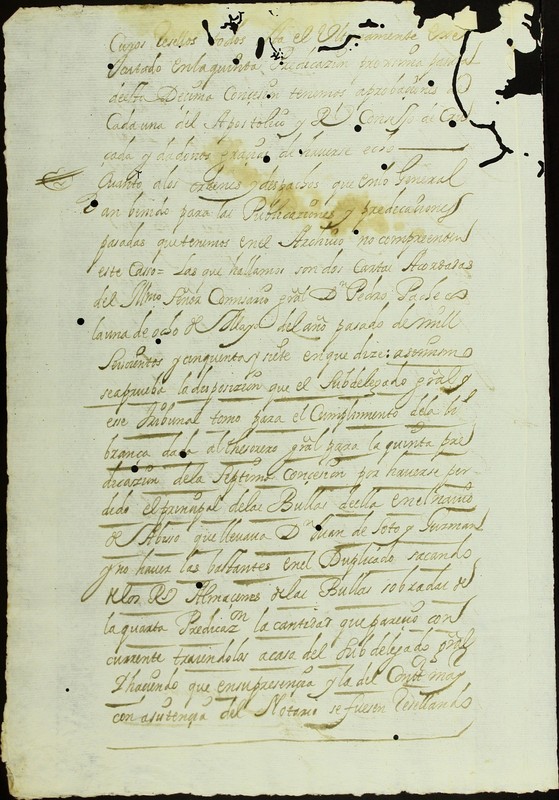 Cuios sellos todos
Ventado en la quinta Predicazion proxima pasada
desta Decima Concesion tenemos aprobaciones
Cada una del Apostolico y Rl Consejo de Cru
cada y de dar gracias de haverse
Quanto a los ordenes y despachos que en lo General
an benido para las Publicaciones y predicaciones
pasadas que tenemos en el Archivo no comprenden
este Casso = Las que hallamos son dos Cartas Acordadas
del Illmo Señor Comisario gral Dn Pedro Pacheco
la una de ocho de Mayo del año pasado de mill
Seiscientos y cinquenta y siete en que dize: assimismo
se aprueba la disposizion que el Subdelegado gral y
ese Tribunal tomo para el Cumplimiento de la li
branca dada al thesorero gral para la quinta pre
dicazion de la septima Concesion por haverse per
dido el principal de las Bullas de ella en el navio
de Aviso que llevava Dn Juan de Soto y Guzman
y no haver las bastantes en el Duplicado sacando
de los Rs Almacenes de las Bullas sobradas de
la quarta Predicazon la cantidad que parecio con
currente trayendolas a casa del Subdelegado gral
y haciendo que en su presencia y la del Contor mayor
con asistencia del Notario se fuesen resellando